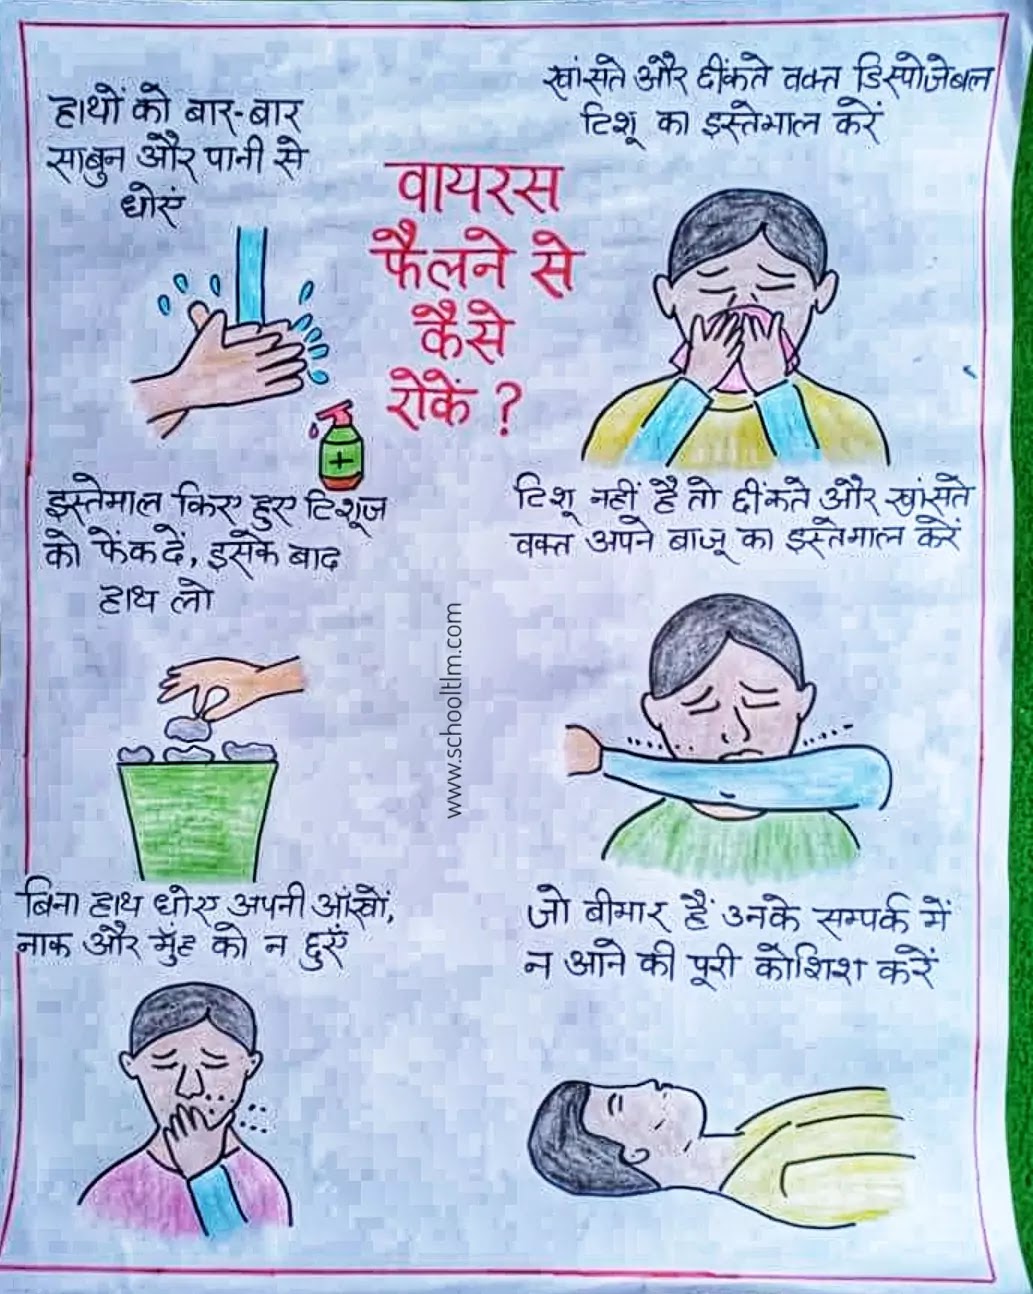 हाथों को बार-बार
साबुन और पानी से
धोएं
खांसते और छींकते वक्त डिस्पोजेबल
टिशू का इस्तेमाल करें
वायरस
फैलने से
कैसे
रोकें ?
इस्तेमाल किए हुए टिशूज
को फेंक दें, इसके बाद
हाथ लो
टिशू नहीं है तो छींकते और खांसते
वक्त अपने बाजू का इस्तेमाल करें
www.schooltlm.com
बिना हाथ धोए अपनी आँखों,
नाक और मुँह को न छुएँ
जो बीमार हैं उनके सम्पर्क में
न आने की पूरी कोशिश करें